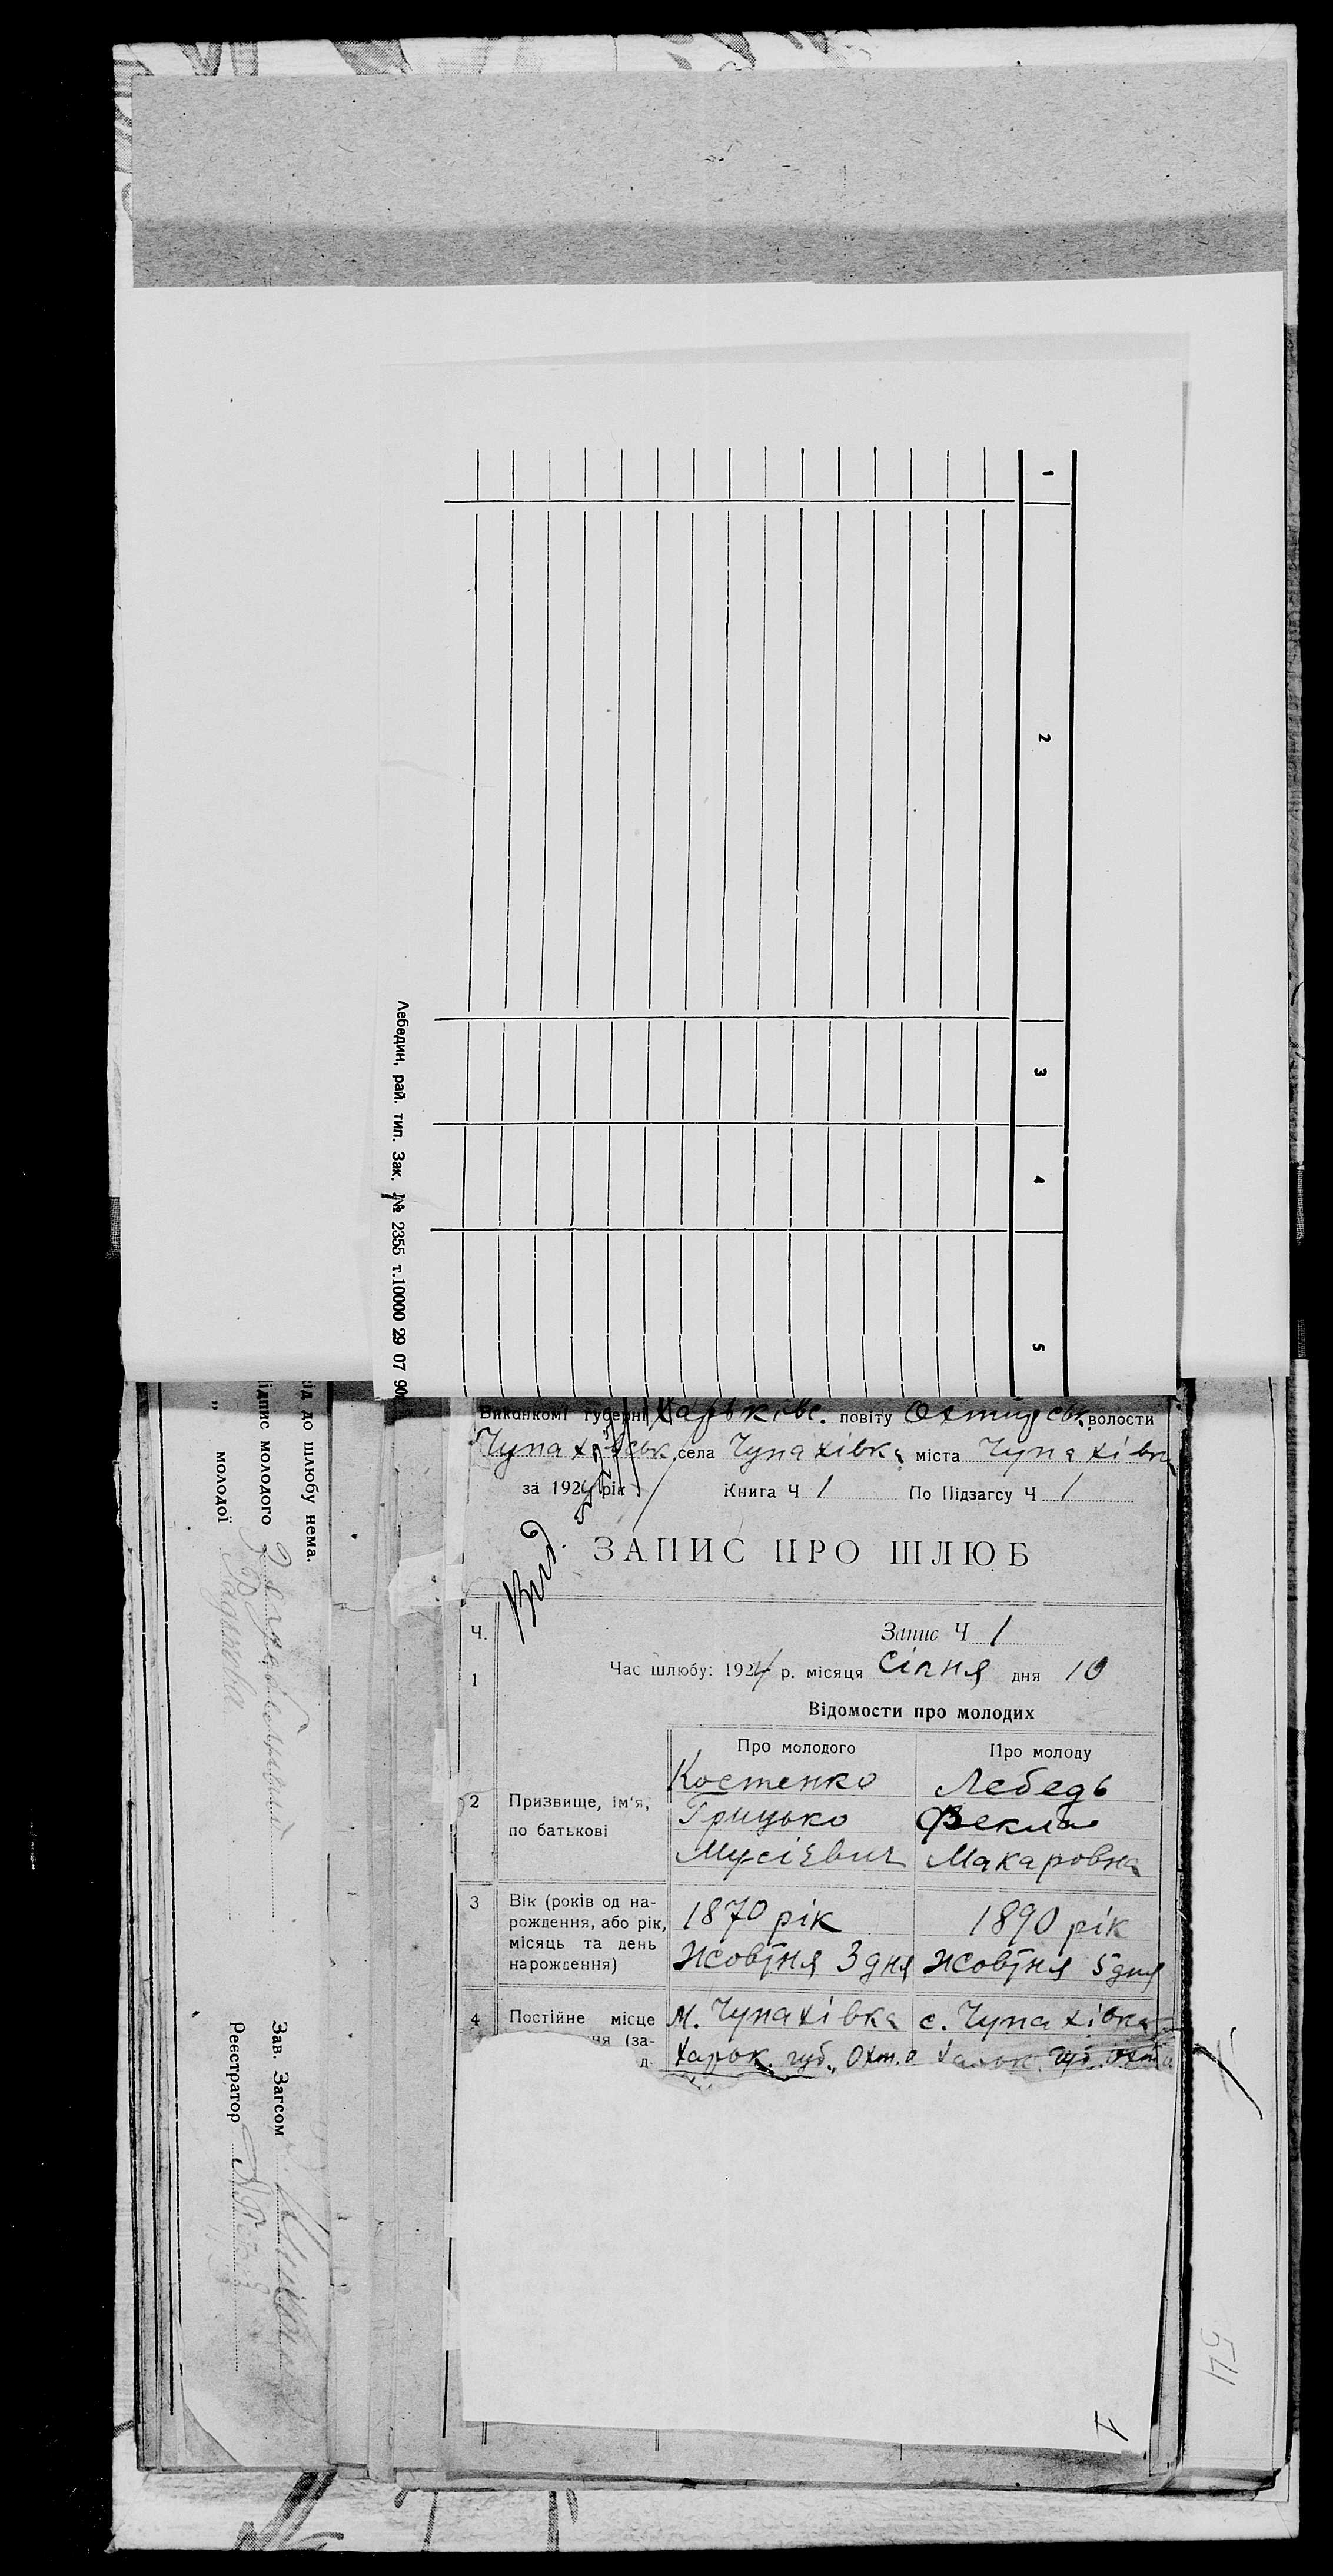 1
2
3
4
5
Лебедин, рай. тип. Зак. № 2355 т.10000 29 07 90
Виконкомі губерні Харьківс. повіту Охтирськ. волости
Чупахівськ. села Чупахівка міста Чупахівка
за 1924 рік Книга Ч 1 По Підзагсу Ч 1
Вид.
ЗАПИС ПРО ШЛЮБ
Ч.
Запис Ч 1
1 Час шлюбу: 1924 р. місяця Січня дня 10
Відомости про молодих
Про молодого Про молоду
Костенко Лебедь
2 Призвище, ім'я, Грицько Фекла
по батькові Мусієвич Макаровна
3 Вік (років од на-
рождення, або рік, 1870 рік 1890 рік
місяць та день Жовтня 3 дня Жовтня 5 дня
нарождення)
4 Постійне місце м. Чупахівка с. Чупахівка
ня (за-
д. Харьк. губ. Охт. о Харьк. губ. Охт. о
1
54
ід до шлюбу нема.
ідпис молодого
„ молодої
Зав. Загсом
Реестратор